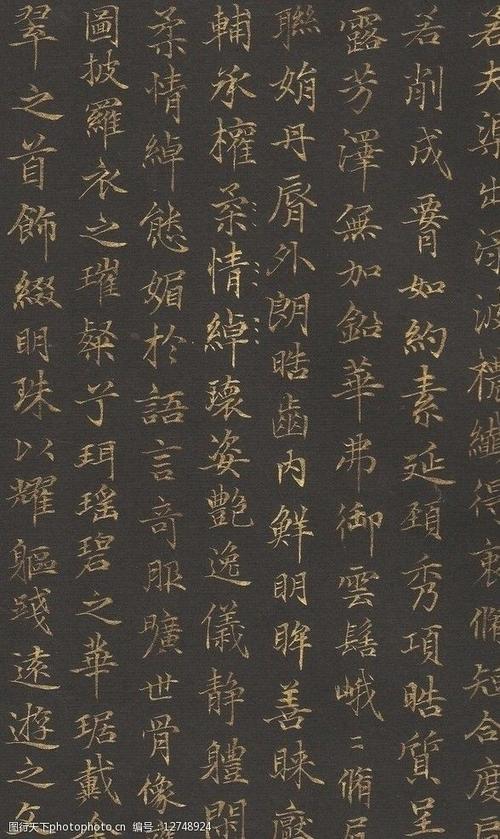 若夫渠出渌波襛纖得衷脩短合度肩
若削成腰如約素延頸秀項晧質呈
露芳澤無加鉛華弗御雲髻峨〻脩眉
聯娟丹脣外朗晧齒內鮮明眸善睞靨
輔承權柔情綽瓌姿艷逸儀靜軆閑
柔情綽態媚於語言奇服曠世骨像
圖披羅衣之璀粲兮珥瑤碧之華琚戴
翠之首飾綴明珠以耀軀踐遠遊之文
图行天下 photophoto.cn 编号：12748924